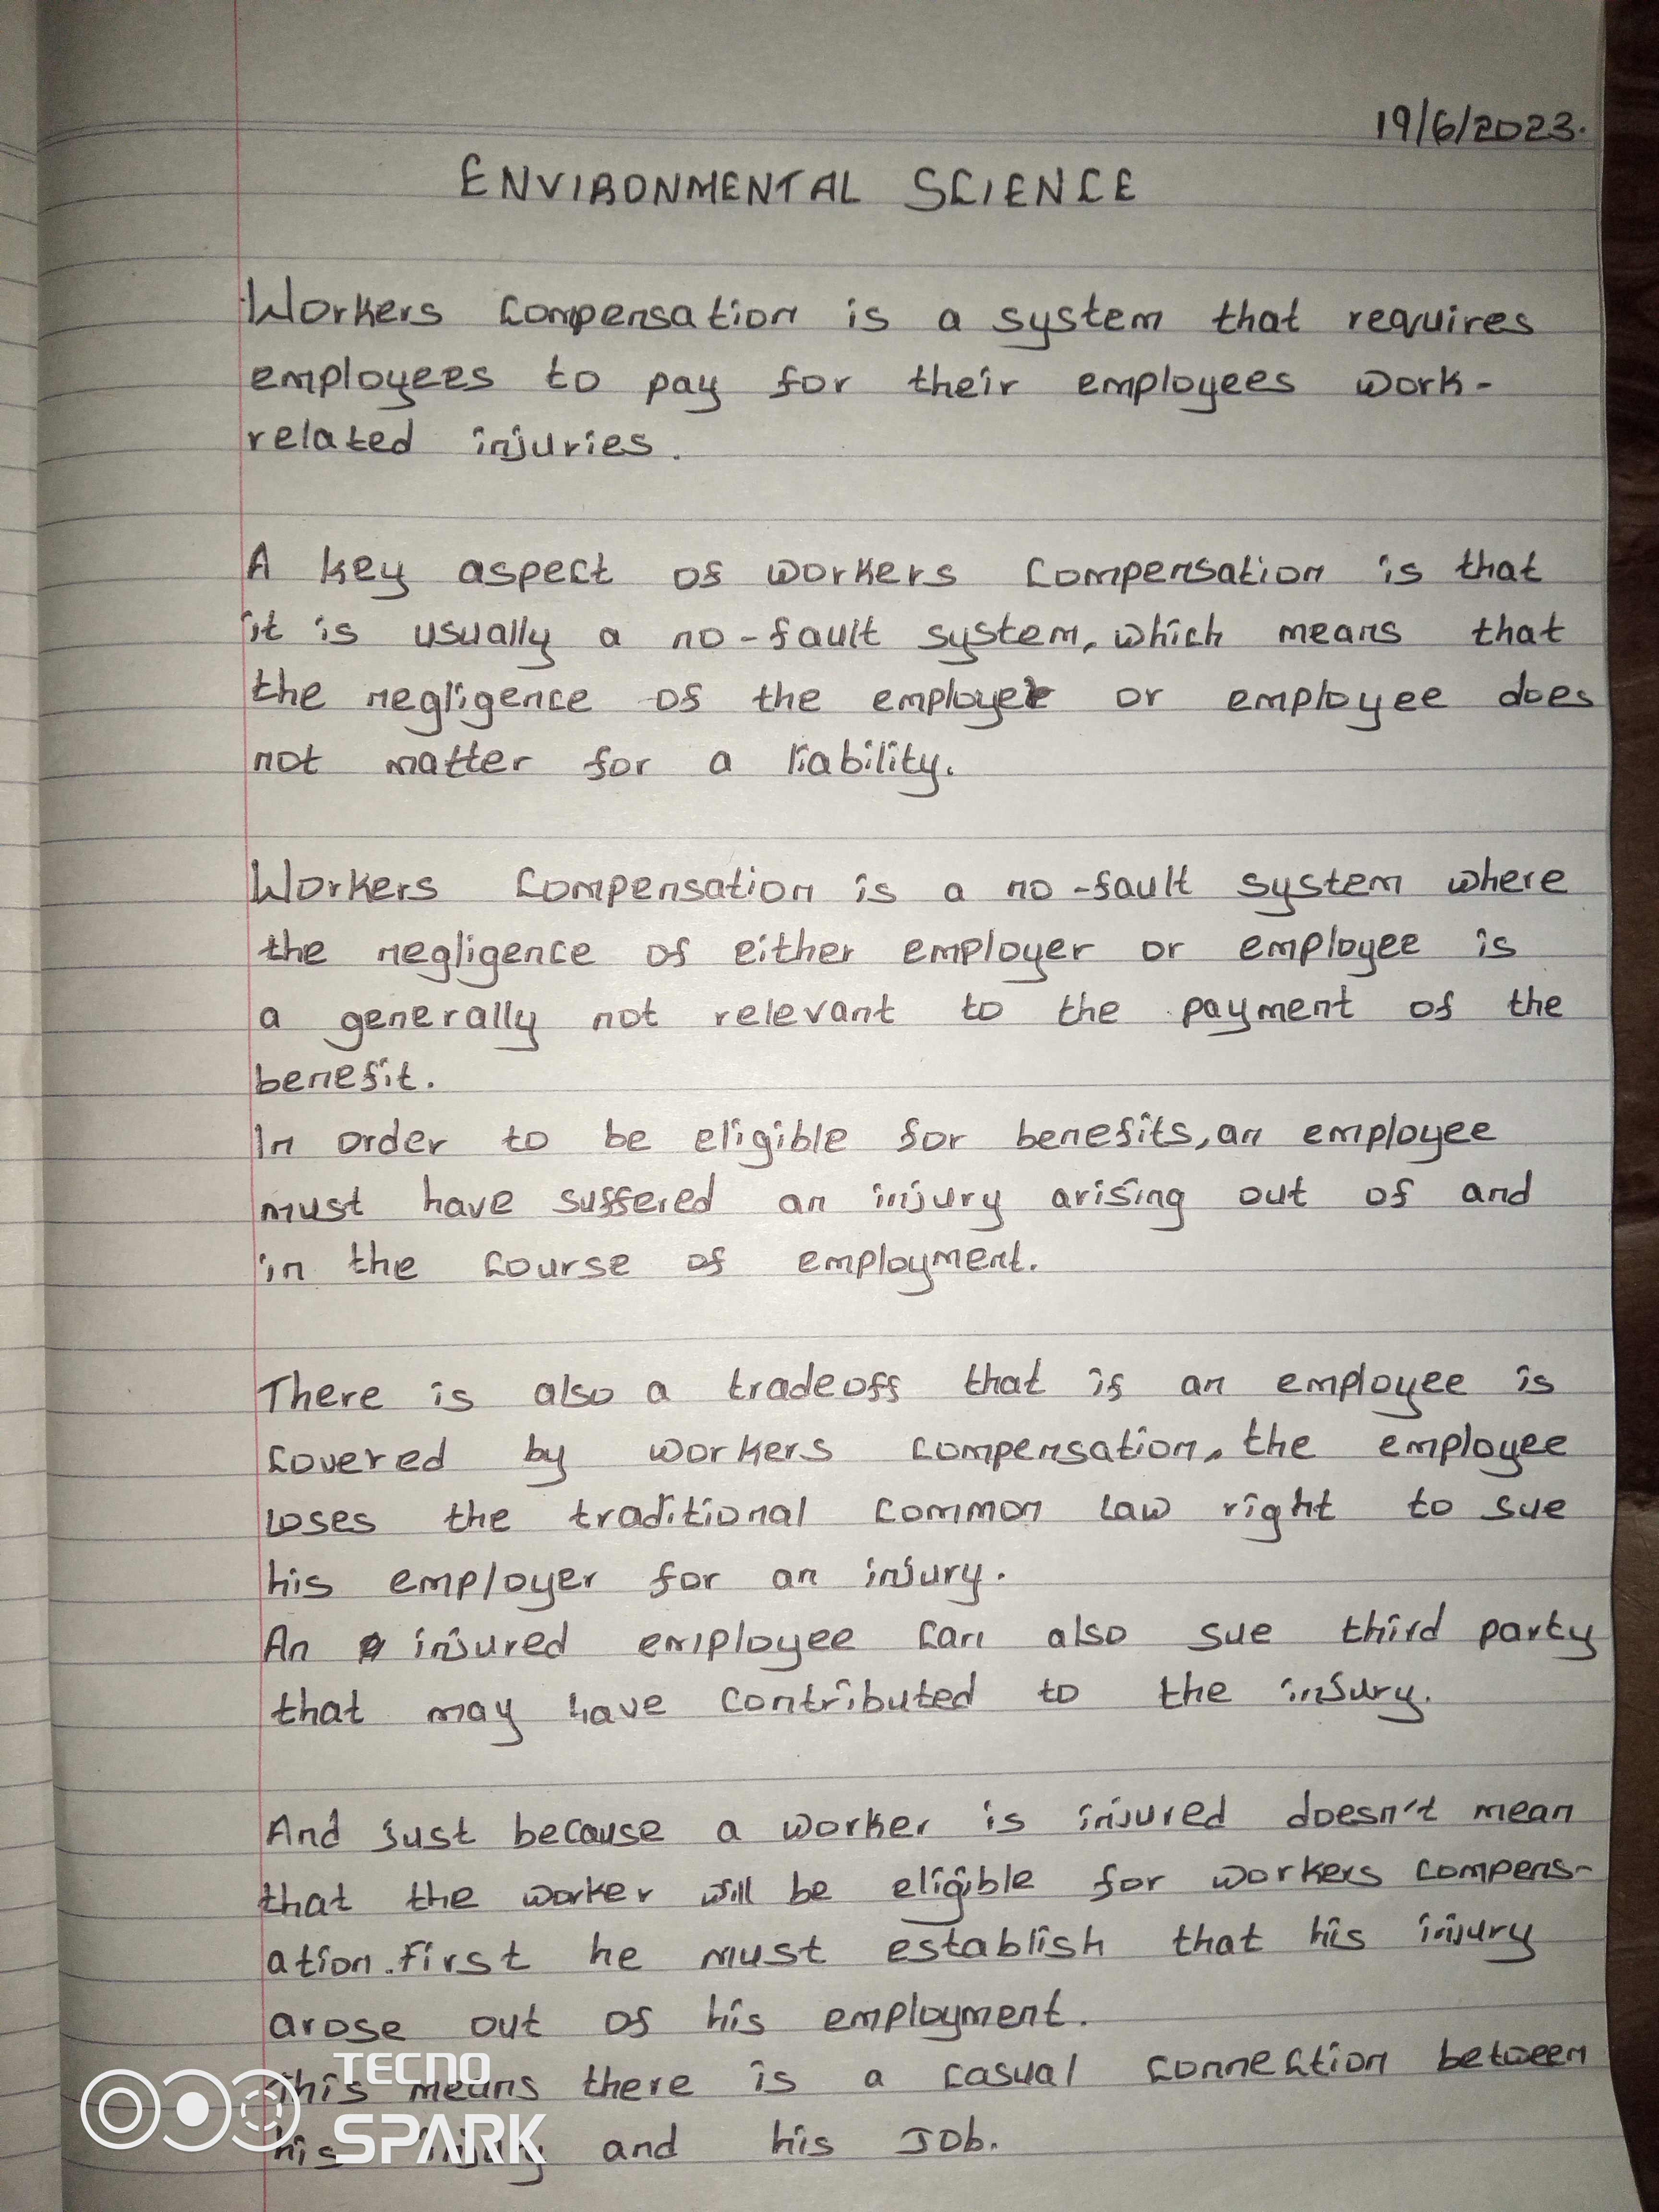 19/6/2023.
ENVIRONMENTAL SCIENCE
Workers compensation is a system that requires
employees to pay for their employees work-
related injuries.
A key aspect of workers compensation is that
it is usually a no-fault system, which means that
the negligence of the employer or employee does
not matter for a liability.
Workers compensation is a no-fault system where
the negligence of either employer or employee is
a generally not relevant to the payment of the
benefit.
In order to be eligible for benefits, an employee
must have suffered an injury arising out of and
in the course of employment.
There is also a tradeoff that if an employee is
covered by workers compensation, the employee
loses the traditional common law right to sue
his employer for an injury.
An injured employee can also sue third party
that may have contributed to the injury.
And just because a worker is injured doesn't mean
that the worker will be eligible for workers compens-
ation. first he must establish that his injury
arose out of his employment.
This means there is a casual connection between
his injury and his Job.
TECNO
SPARK